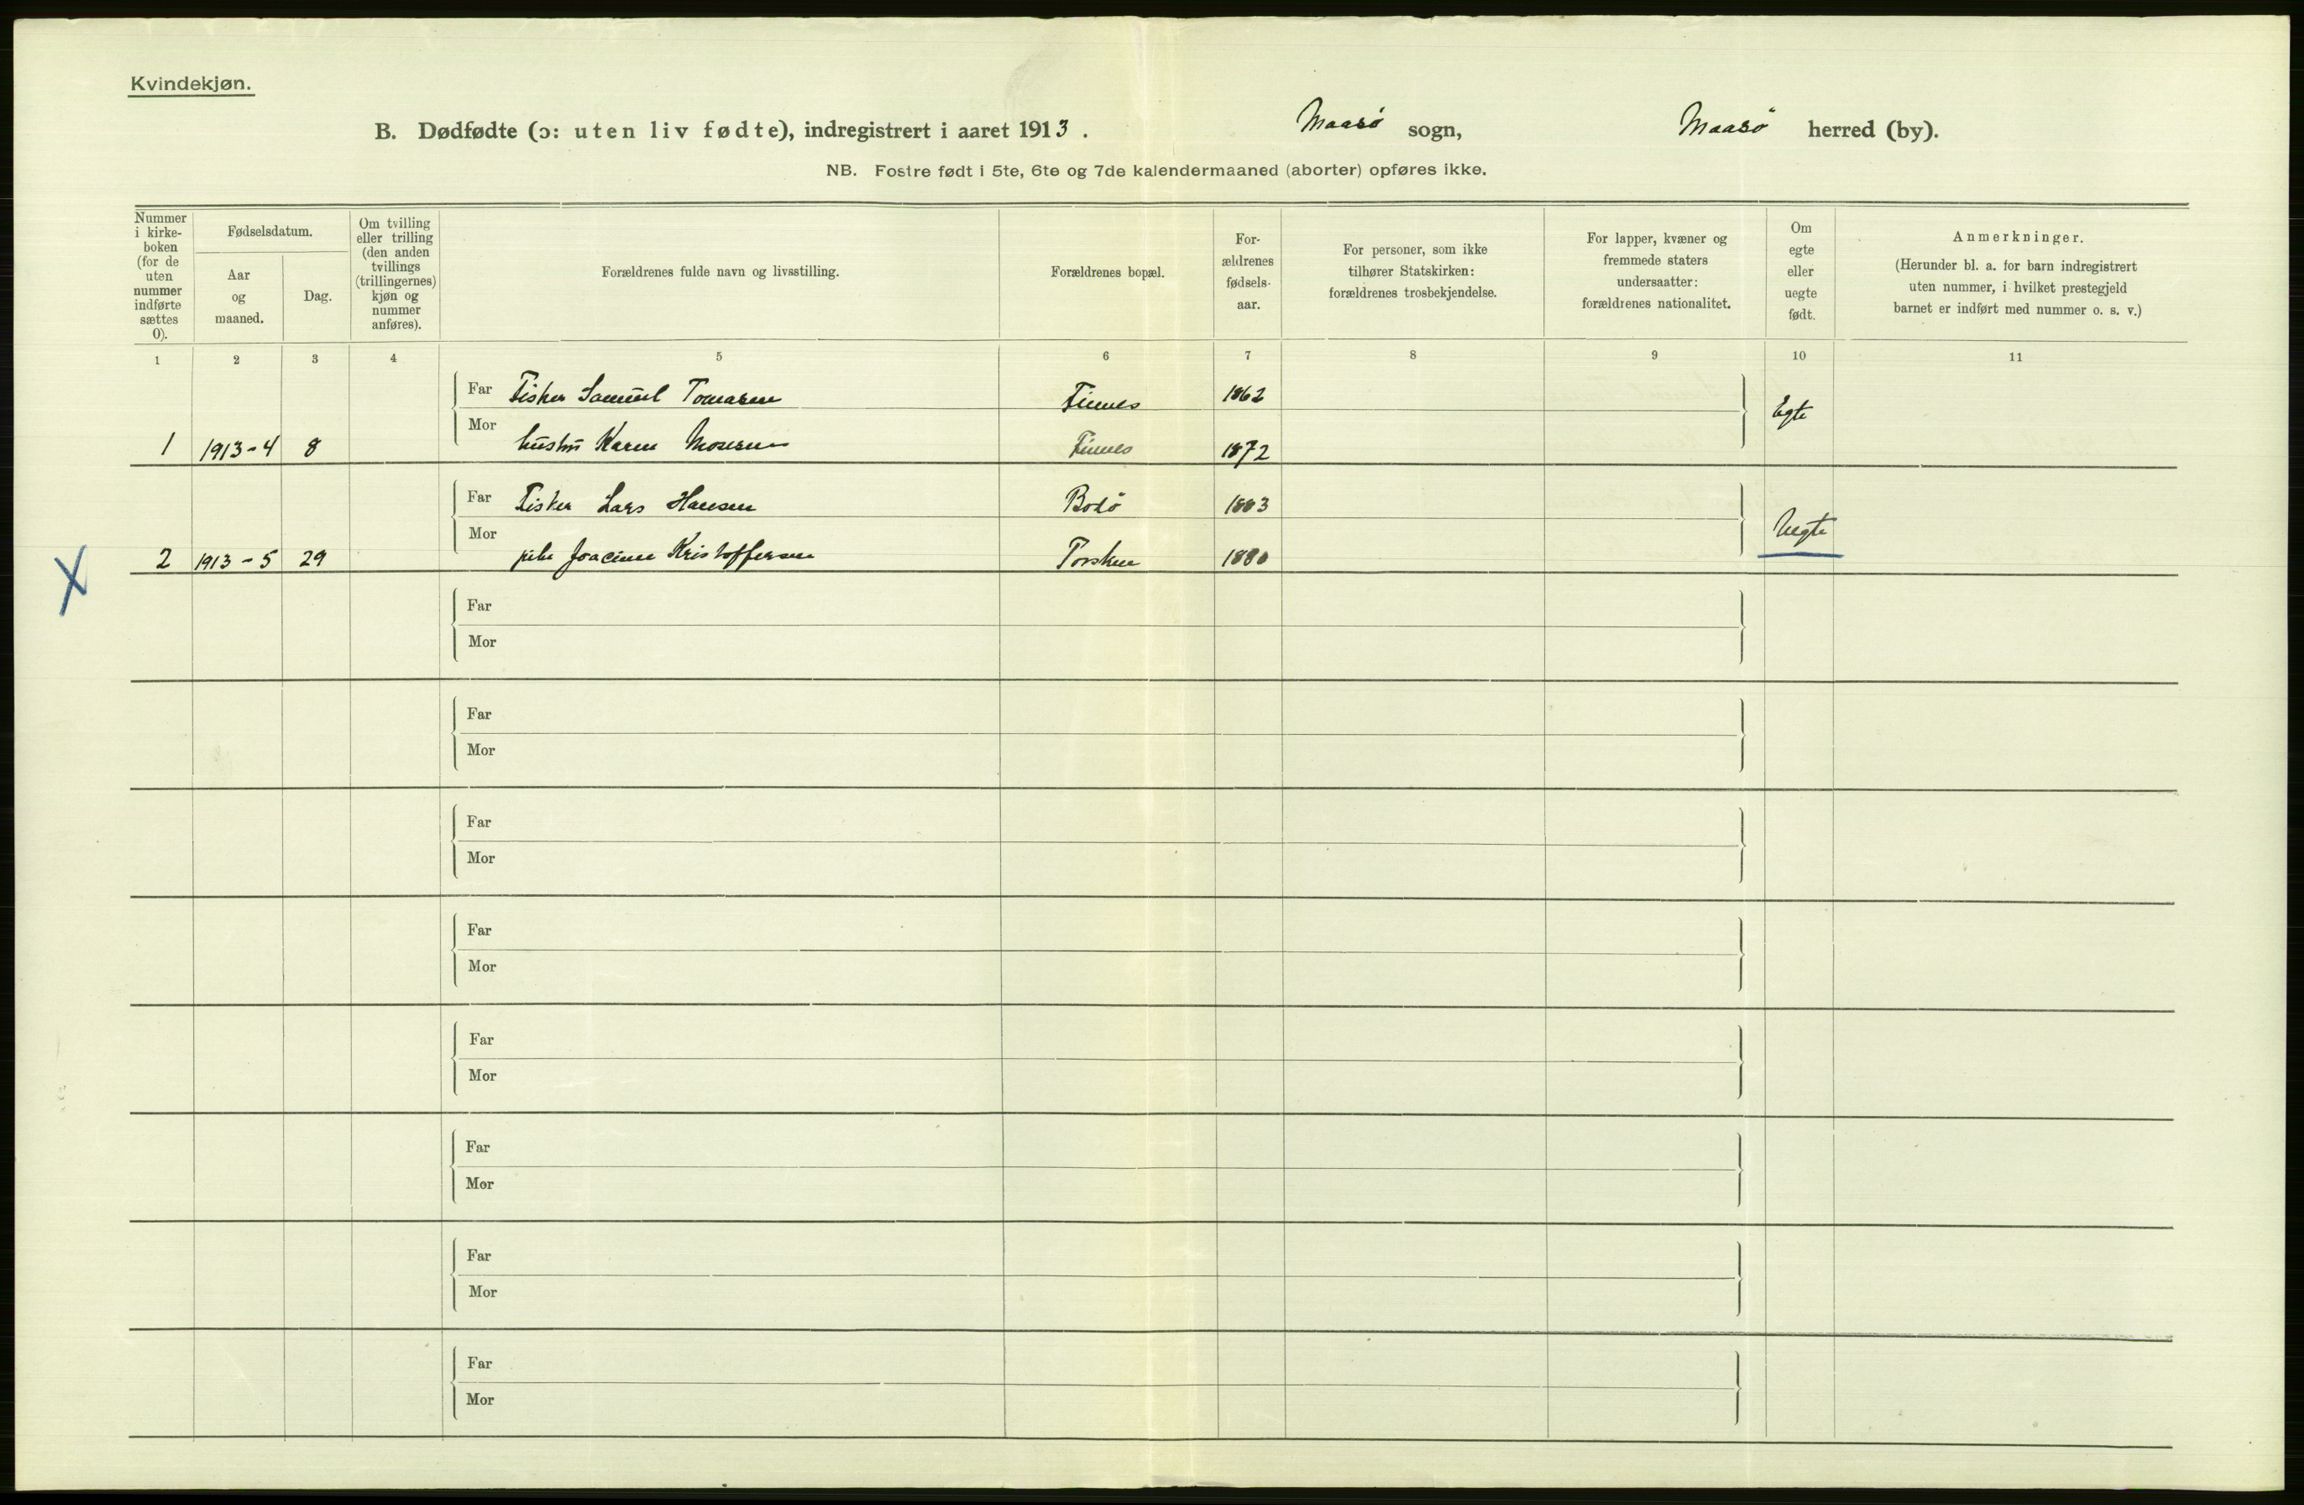 Kvindekjøn.
B. Dødfødte (ɔ: uten liv fødte), indregistrert i aaret 1913. Maasø sogn, Maasø herred (by).
NB. Fostre født i 5te, 6te og 7de kalendermaaned (aborter) opføres ikke.
Nummer
i kirke-
boken
(for de
uten
nummer
indførte
sættes
0).
Fødselsdatum.
Aar
og
maaned.
Dag.
Om tvilling
eller trilling
(den anden
tvillings
(trillingernes)
kjøn og
nummer
anføres).
Forældrenes fulde navn og livsstilling.
Forældrenes bopæl.
For-
ældrenes
fødsels-
aar.
For personer, som ikke
tilhører Statskirken:
forældrenes trosbekjendelse.
For lapper, kvæner og
fremmede staters
undersaatter:
forældrenes nationalitet.
Om
egte
eller
uegte
født.
Anmerkninger.
(Herunder bl. a. for barn indregistrert
uten nummer, i hvilket prestegjeld
barnet er indført med nummer o. s. v.)
1 2 3 4 5 6 7 8 9 10 11
Far Fisker Samuel Tomasen Finnes 1862 Egte
1 1913-4 8 Mor hustru Karen Mosesen Finnes 1872
Far Fisker Lars Hansen Bodø 1883 Uegte
X 2 1913-5 29 Mor pike Joacime Kristoffersen Torsken 1880
Far
Mor
Far
Mor
Far
Mor
Far
Mor
Far
Mor
Far
Mor
Far
Mor
Far
Mor